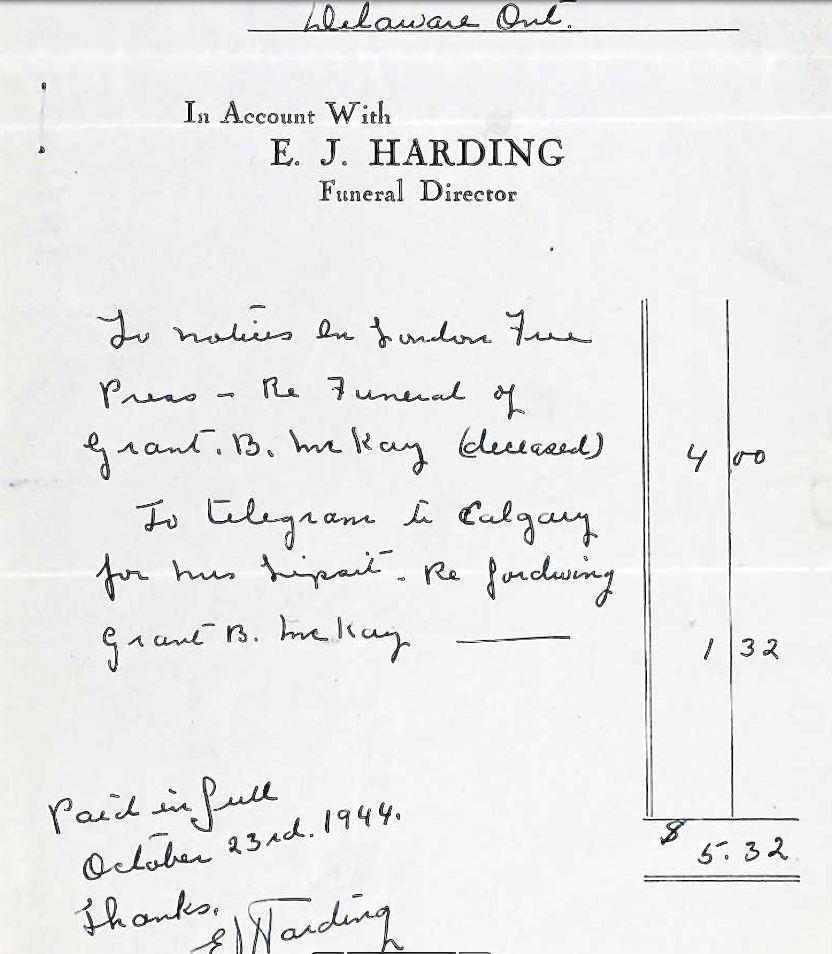 Delaware Ont.
In Account With
E. J. HARDING
Funeral Director
To notices in London Free
Press - Re Funeral of
Grant. B. McKay (deceased) 4 00
To telegram to Calgary
for Mrs. Re
Grant B. McKay 1 32
$ 5.32
Paid in full
October 23rd. 1944.
Thanks.
EJ Harding